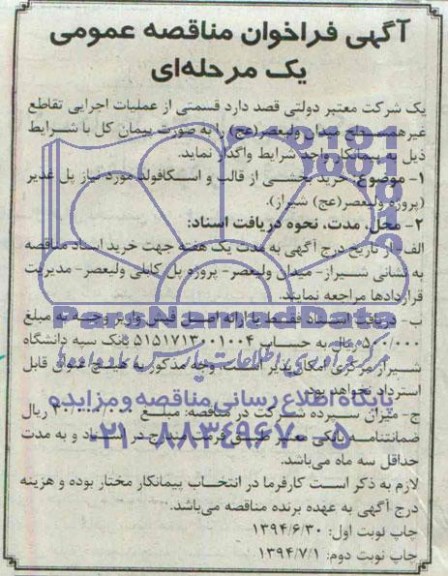 آگهی فراخوان مناقصه عمومی
یک مرحله‌ای
یک شرکت معتبر دولتی قصد دارد قسمتی از عملیات اجرایی تقاطع
میدان ولیعصر(عج) را به صورت پیمان کل با شرایط
ذیل به پیمانکار واجد شرایط واگذار نماید.
۱- موضوع: خرید بخشی از قالب و اسکافولد مورد نیاز پل غدیر
(پروژه ولیعصر(عج) شیراز).
۲- محل، مدت، نحوه دریافت اسناد:
الف- از تاریخ درج آگهی به مدت یک هفته جهت خرید اسناد مناقصه
به نشانی شیراز- میدان ولیعصر- پروژه پل کابلی ولیعصر- مدیریت
قراردادها مراجعه نمایند.
ب- دریافت اسناد فقط با ارائه اصل فیش واریز وجه به مبلغ
ریال به حساب بانک سپه دانشگاه
شیراز مرکزی امکان‌پذیر است. وجه مذکور به هیچ عنوان قابل
استرداد نخواهد بود.
ج- میزان سپرده شرکت در مناقصه: مبلغ ریال
ضمانتنامه بانکی معتبر طبق فرمت مندرج در اسناد و به مدت
حداقل سه ماه می‌باشد.
لازم به ذکر است کارفرما در انتخاب پیمانکار مختار بوده و هزینه
درج آگهی به عهده برنده مناقصه می‌باشد.
چاپ نوبت اول: ۱۳۹۴/۶/۳۰
چاپ نوبت دوم: ۱۳۹۴/۷/۱
ParsNamadData
پایگاه اطلاع رسانی مناقصه و مزایده
۰۲۱-۸۸۳۴۹۶۷۰-۵